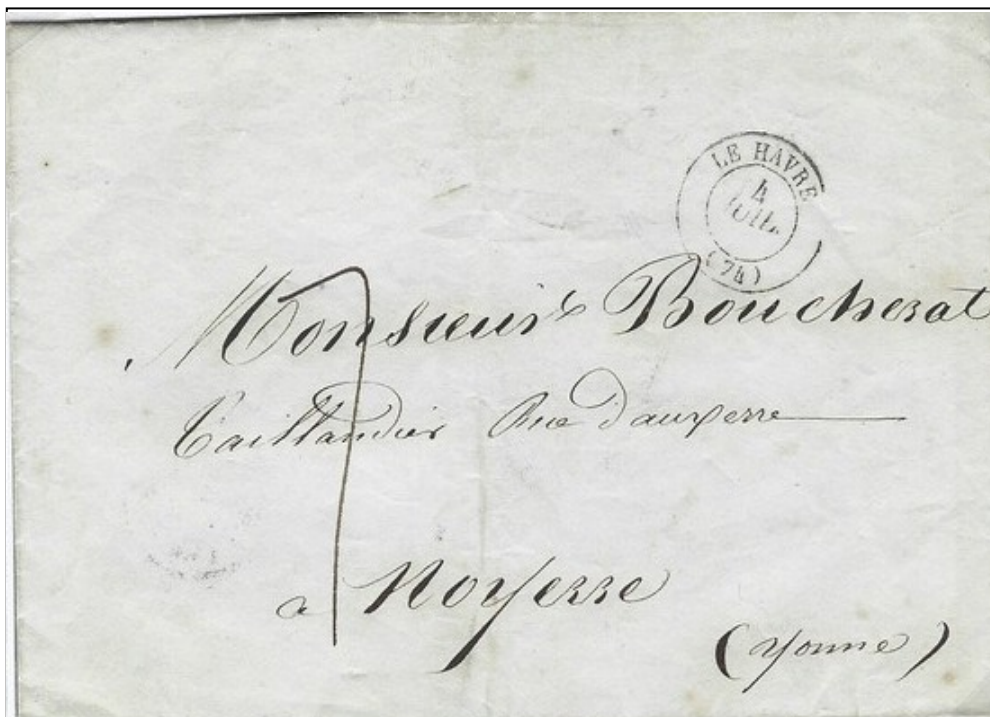 LE HAVRE
4
JUIL.
(74)
Monsieur Boucherat
Taillandier Rue D'auxerre
a Noyerre
(Yonne)